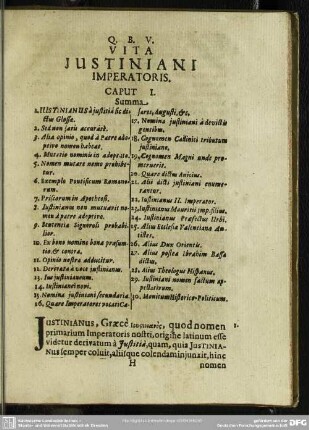 Q. B. V.
VITA
JUSTINIANI
IMPERATORIS.
CAPUT I.
Summa.
1. JUSTINIANUS à justitiâ sic dictus Glossæ.
2. Sed non satis accuratè.
3. Alia opinio, quod à Patre adoptivo nomen habeat.
4. Mutatio nominis in adoptato.
5. Nomen mutare nemo prohibetur.
6. Exemplo Pontificum Romanorum.
7. Priscorum in Apotheosi.
8. Justinianum non mutuatis nomen à patre adoptivo.
9. Sententia Signoroli probabilior.
10. Ex bono nomine bona præsumtio & contra.
11. Opinio nostra adducitur.
12. Derivata à voce justinianus.
13. Jus justinianeum.
14. Justinianei novi.
15. Nomina justiniani secundaria.
16. Quare Imperatores vocati Cæsares, Augusti, &c.
17. Nomina justiniani à devictis gentibus.
18. Cognomen Catiniti tributum justiniano.
19. Cognomen Magni unde promeruerit.
20. Quare dictus Anicius.
21. Alii dicti justiniani enumerantur.
22. Justinianus II. Imperator.
23. Justinianus Mauritii Imp. filius.
24. Justinianus Præfectus Urbi.
25. Alius Ecclesiæ Valentinæ Antistes.
26. Alius Dux Orientis.
27. Alius poeta Ibrahim Bassa dictus.
28. Alius Theologus Hispanus.
29. Justiniani nomine factum appellativum.
30. Monitum Historico-Politicum.
JUSTINIANUS, Græcè quod nomen 1.
primarium Imperatoris nostri, origine latinum esse
videtur derivatum à Justitiâ, quam, quia JUSTINIANUS
semper coluit, aliisque colendam injunxit, hinc
H nomen